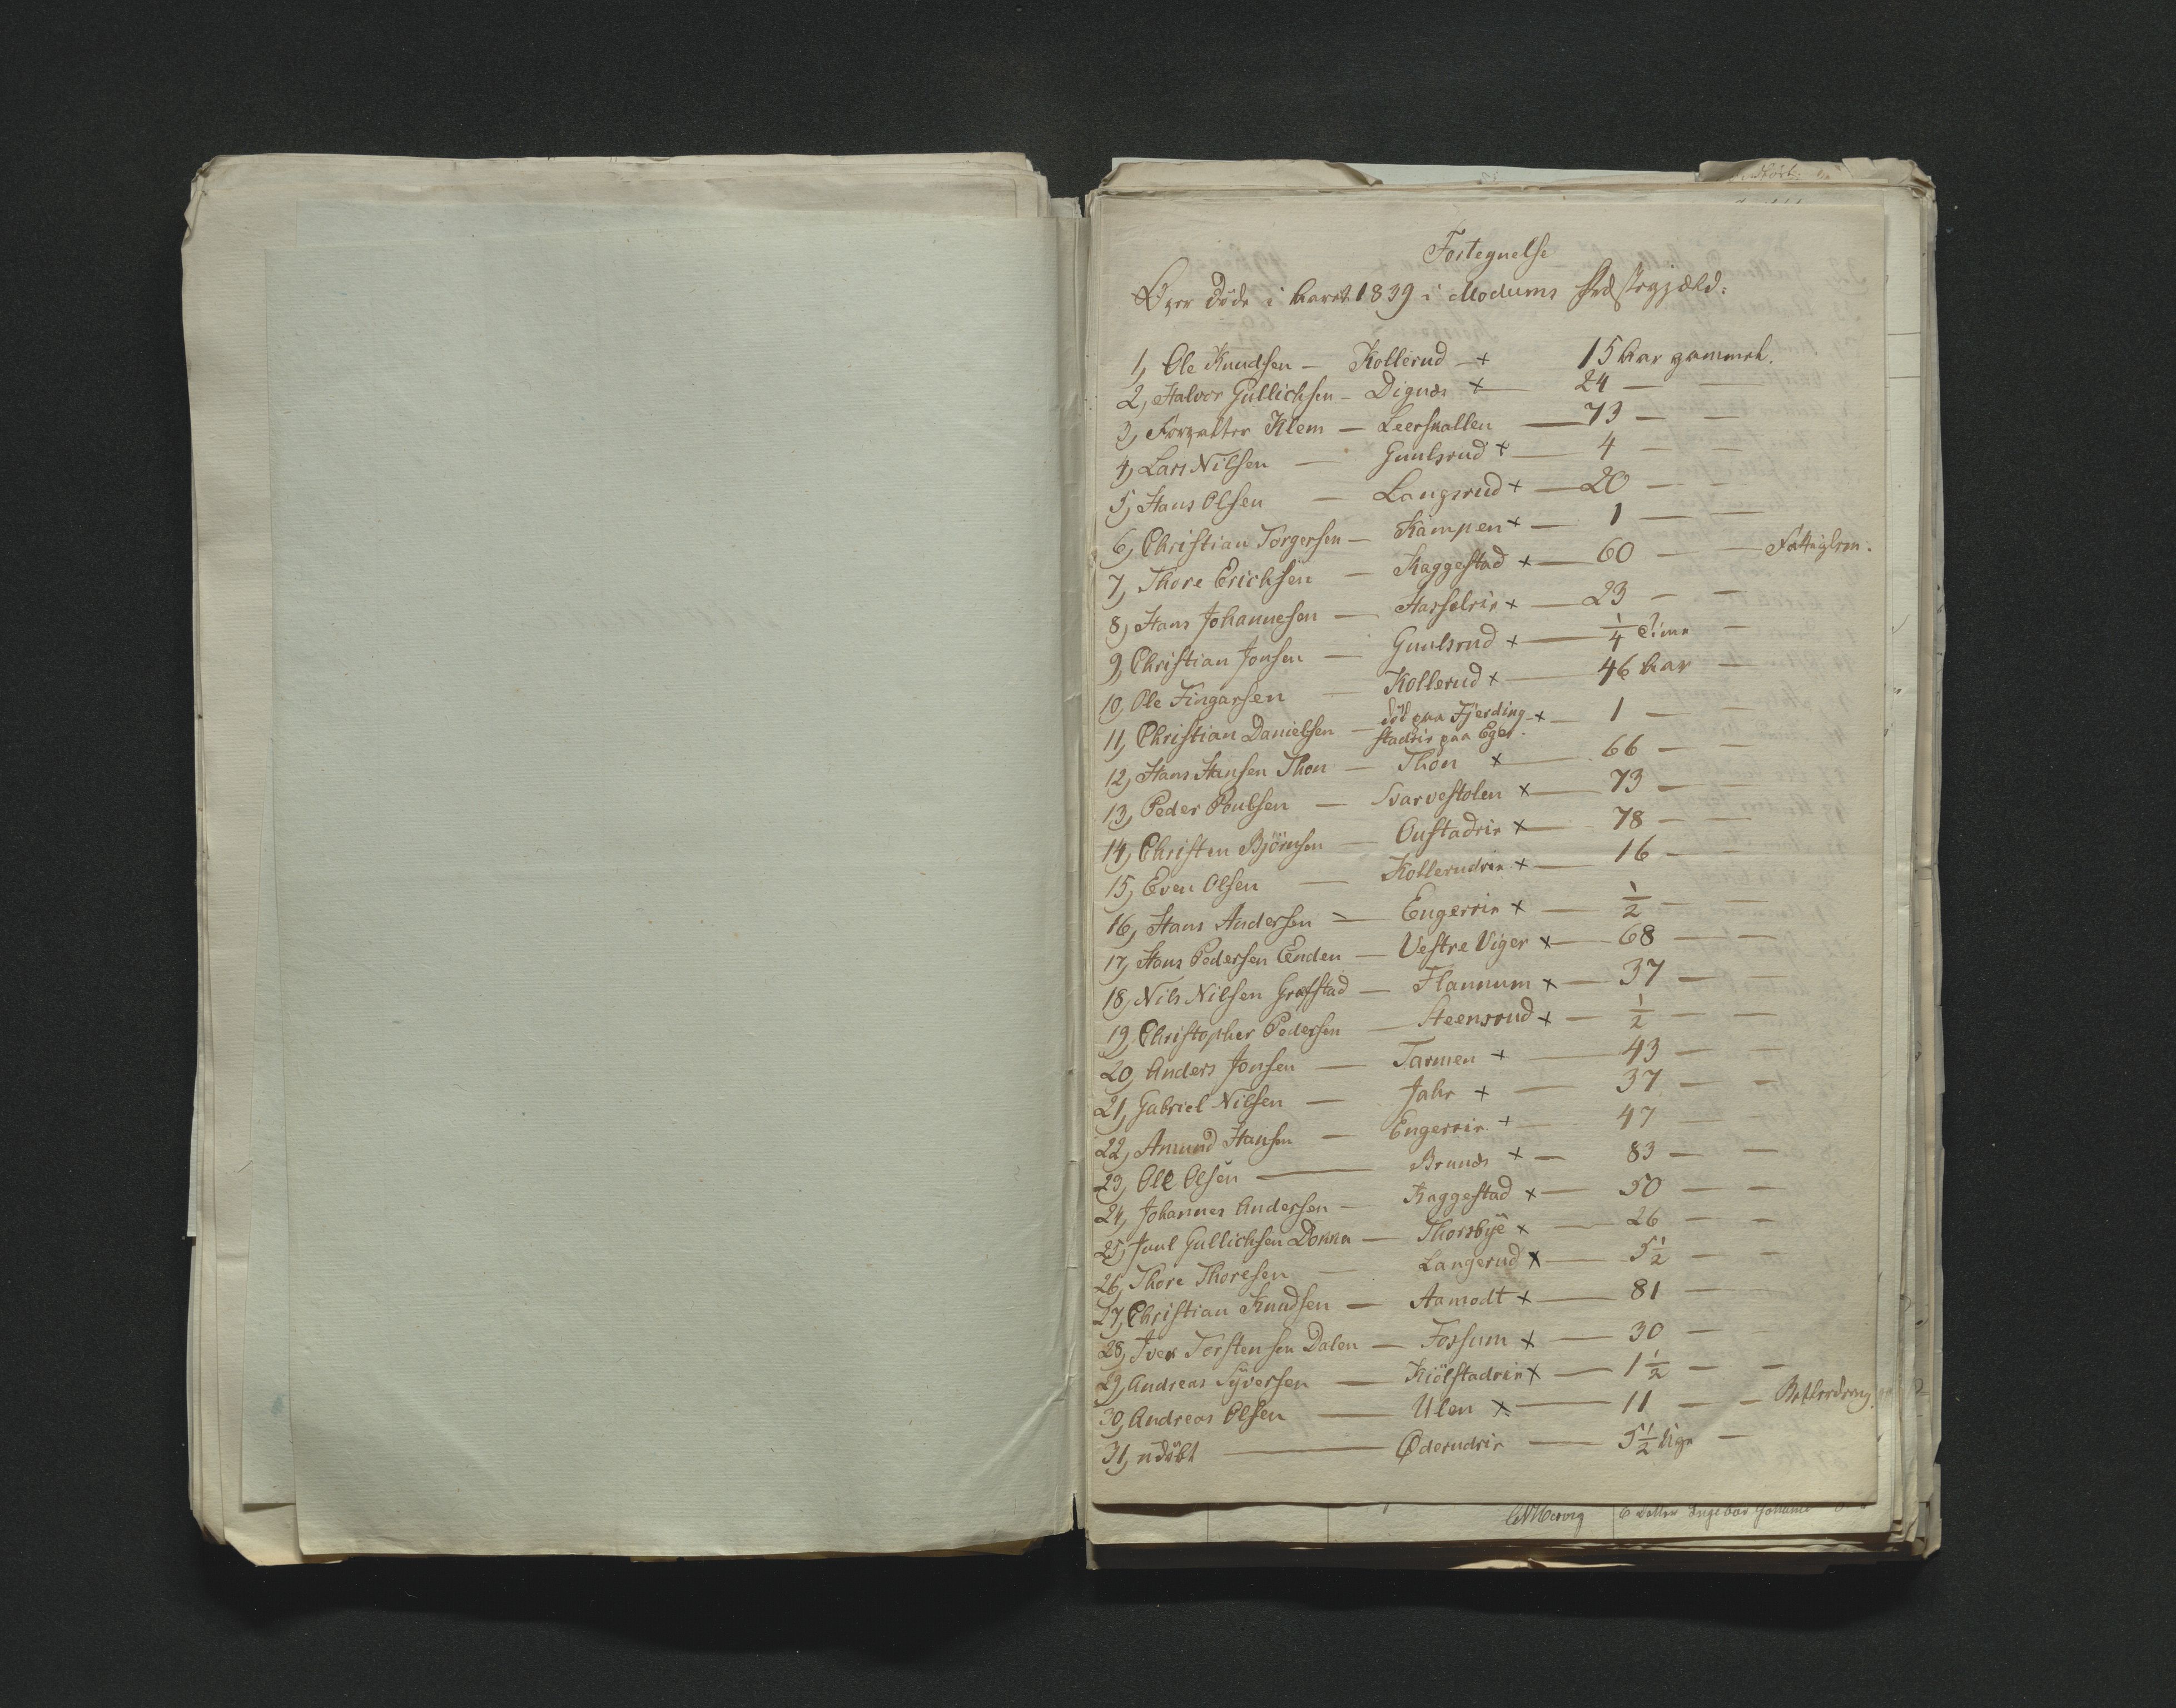 Fortegnelse
Over Døde i Aaret 1839 i Modums Præstegjæld:
1, Ole Knudsen — Kollerud — + 15 Aar gammel.
2, Halvor Gullichsen — Dignæs + — 24 — —
3, Forvalter Klem — Leerskallen — 73 — —
4, Lars Nilsen — Guulsrud + — 4 — —
5, Hans Olsen — Langsrud + — 20 — —
6, Christian Torgersen — Kampen + — 1 — —
7, Thore Erichsen — Kaggestad + — 60 — — Fattiglem.
8, Hans Johannesen — Hasseleie + — 23 — —
9, Christian Jonsen — Guulsrud + — 1/4 Time —
10, Ole Fingarsen — Kollerud + — 46 Aar —
11, Christian Danielsen — død paa Fjerding- + — 1 — —
stadeie paa Eger.
12, Hans Hansen Thon — Thon + — 66 — —
13, Peder Poulsen — Svarvestolen + — 73 — —
14, Christen Björnsen — Oustadeie + — 78 — —
15, Even Olsen — Kollerudeie + — 16 — —
16, Hans Andersen — Engereie + — 1/2 — —
17, Hans Pedersen Enden — Vestre Viger + — 68 — —
18, Nils Nilsen Græfstad — Flannum + — 37 — —
19, Christopher Pedersen — Steensrud + — 1/2 — —
20, Anders Jonsen — Tarmen + — 43 — —
21, Gabriel Nilsen — Jahr + — 37 — —
22, Amund Hansen — Engereie + — 47 — —
23, Ole Olsen — Brunæs + — 83 — —
24, Johannes Andersen — Kaggestad + — 50 — —
25, Juul Gullichsen Donna — Thorsbye + — 26 — —
26, Thore Thoresen — Langerud + — 5 1/2 — —
27, Christian Knudsen — Aamodt + — 81 — —
28, Iver Torstensen Dalen — Fossum + — 30 —
29, Andreas Syversen — Kiölstadeie + — 1 1/2 — —
30, Andreas Olsen — Ulen + — 11 — — Betlerdreng.
31, udöbt — Øderudeie — 5 1/2 Uge —